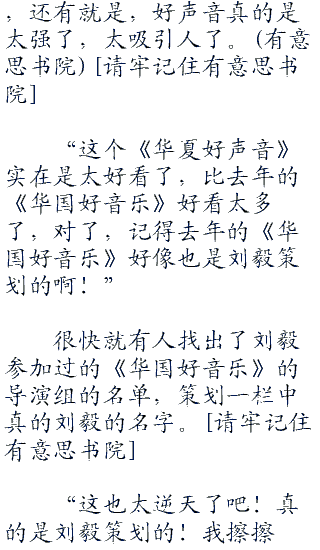 ，还有就是，好声音真的是
太强了，太吸引人了。(有意
思书院) [请牢记住有意思书
院]
“这个《华夏好声音》
实在是太好看了，比去年的
《华国好音乐》好看太多
了，对了，记得去年的《华
国好音乐》好像也是刘毅策
划的啊！”
很快就有人找出了刘毅
参加过的《华国好音乐》的
导演组的名单，策划一栏中
真的刘毅的名字。[请牢记住
有意思书院]
“这也太逆天了吧！真
的是刘毅策划的！我擦擦